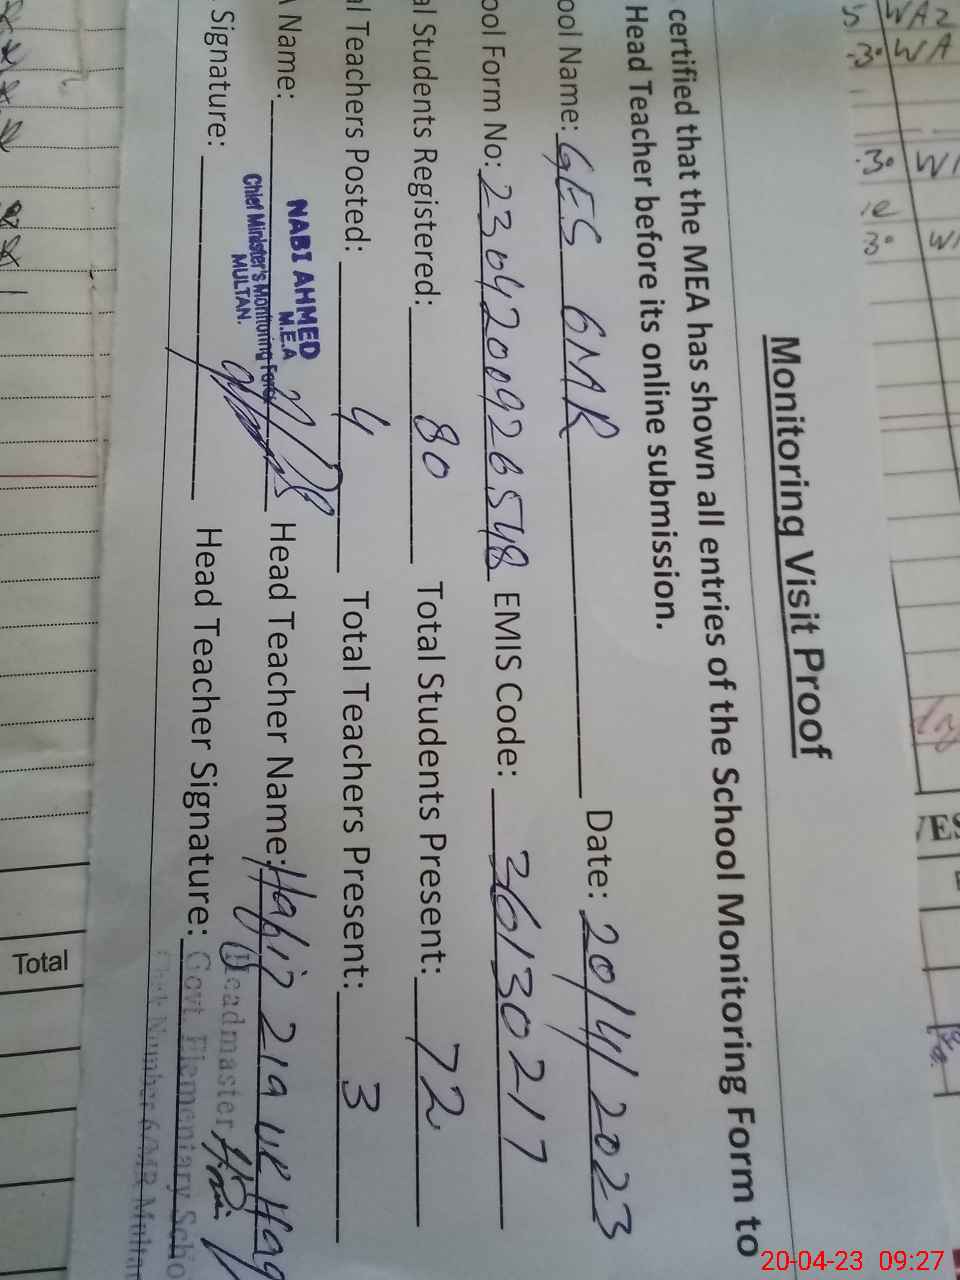 Monitoring Visit Proof
certified that the MEA has shown all entries of the School Monitoring Form to
Head Teacher before its online submission.
ool Name: GES 6MR Date: 20/4/2023
ool Form No: 2304200926548 EMIS Code: 36130217
al Students Registered: 80 Total Students Present: 72
al Teachers Posted: 4 Total Teachers Present: 3
A Name: NABI AHMED Head Teacher Name: Hafiz Zia Ul Haq
M.E.A
Chief Minister's Monitoring Force
MULTAN.
Signature: Head Teacher Signature:
Headmaster
Govt. Elementary Schoo
Chak Number 6/MR Multan
Total
WA
.30
20-04-23 09:27